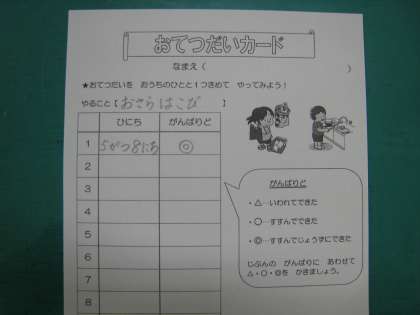 おてつだいカード
なまえ（　　　　　　　　　　）
★おてつだいを　おうちのひとと１つきめて　やってみよう！
やること【おさらはこび】
ひにち　がんばりど
1　5がつ8にち　◎
2
3
4
5
6
7
8
がんばりど
・△…いわれてできた
・○…すすんでできた
・◎…すすんでじょうずにできた
じぶんの　がんばりに　あわせて
△・○・◎を　かきましょう。